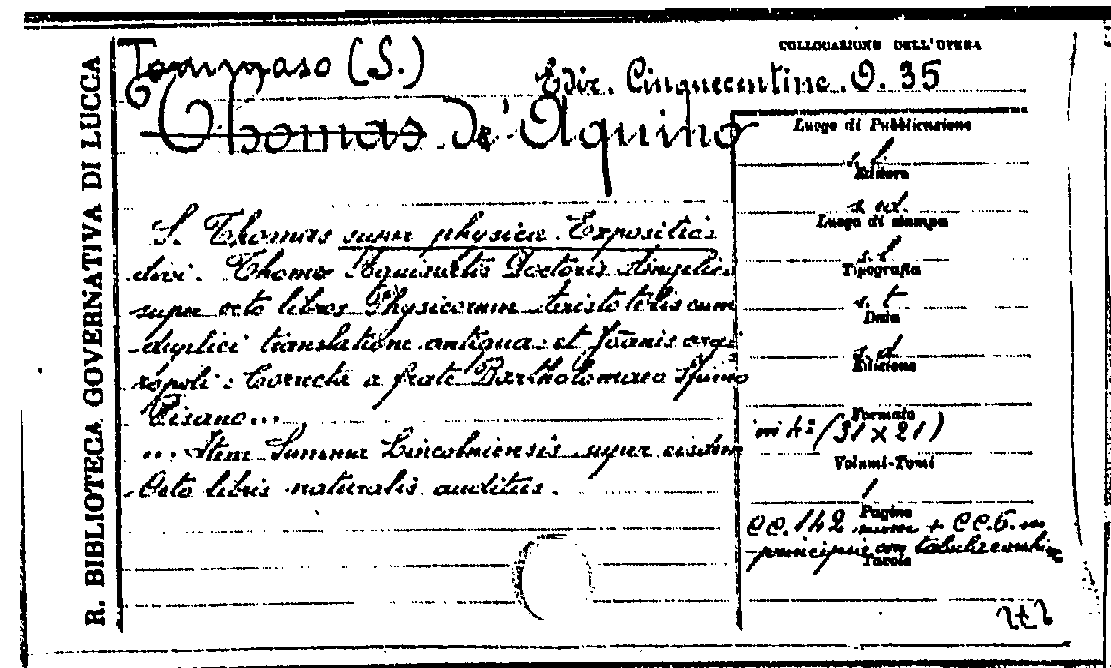 R. BIBLIOTECA GOVERNATIVA DI LUCCA
COLLOCAZIONE DELL'OPERA
Tommaso (S.)
Ediz. Cinquecentine. O. 35
Thomas de' Aquino
S. Thomas super physica. Expositio
divi. Thome Aquinatis Doctoris Angelici
super octo libros Physicorum Aristotelis cum
duplici translatione antiqua et Joanis argi
ropoli: Correcta a frate Bartholomaeo Spino
Pisano...
... Item Summa Lincolniensis super eisdem
Octo libris naturalis auditus.
Luogo di Pubblicazione
s. l.
Editore
s. ed.
Luogo di stampa
s. l.
Tipografia
s. t.
Data
s. d.
Edizione
Formato
in 4º (31 x 21)
Volumi-Tomi
1
Pagine
CC. 142 + CC. 6. in
principio con tabula
Tavole